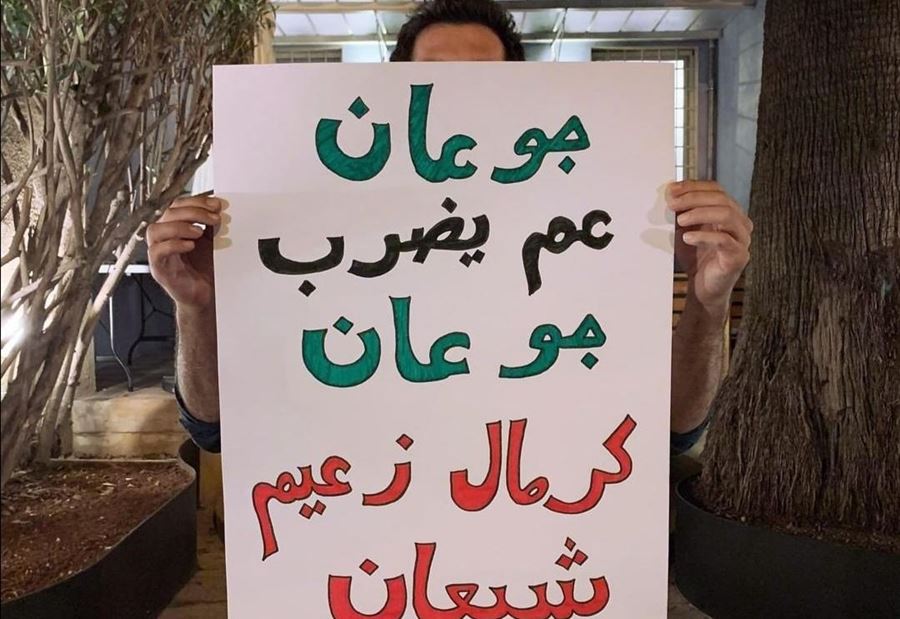 جوعان
عم يضرب
جوعان
كرمال زعيم
شبعان